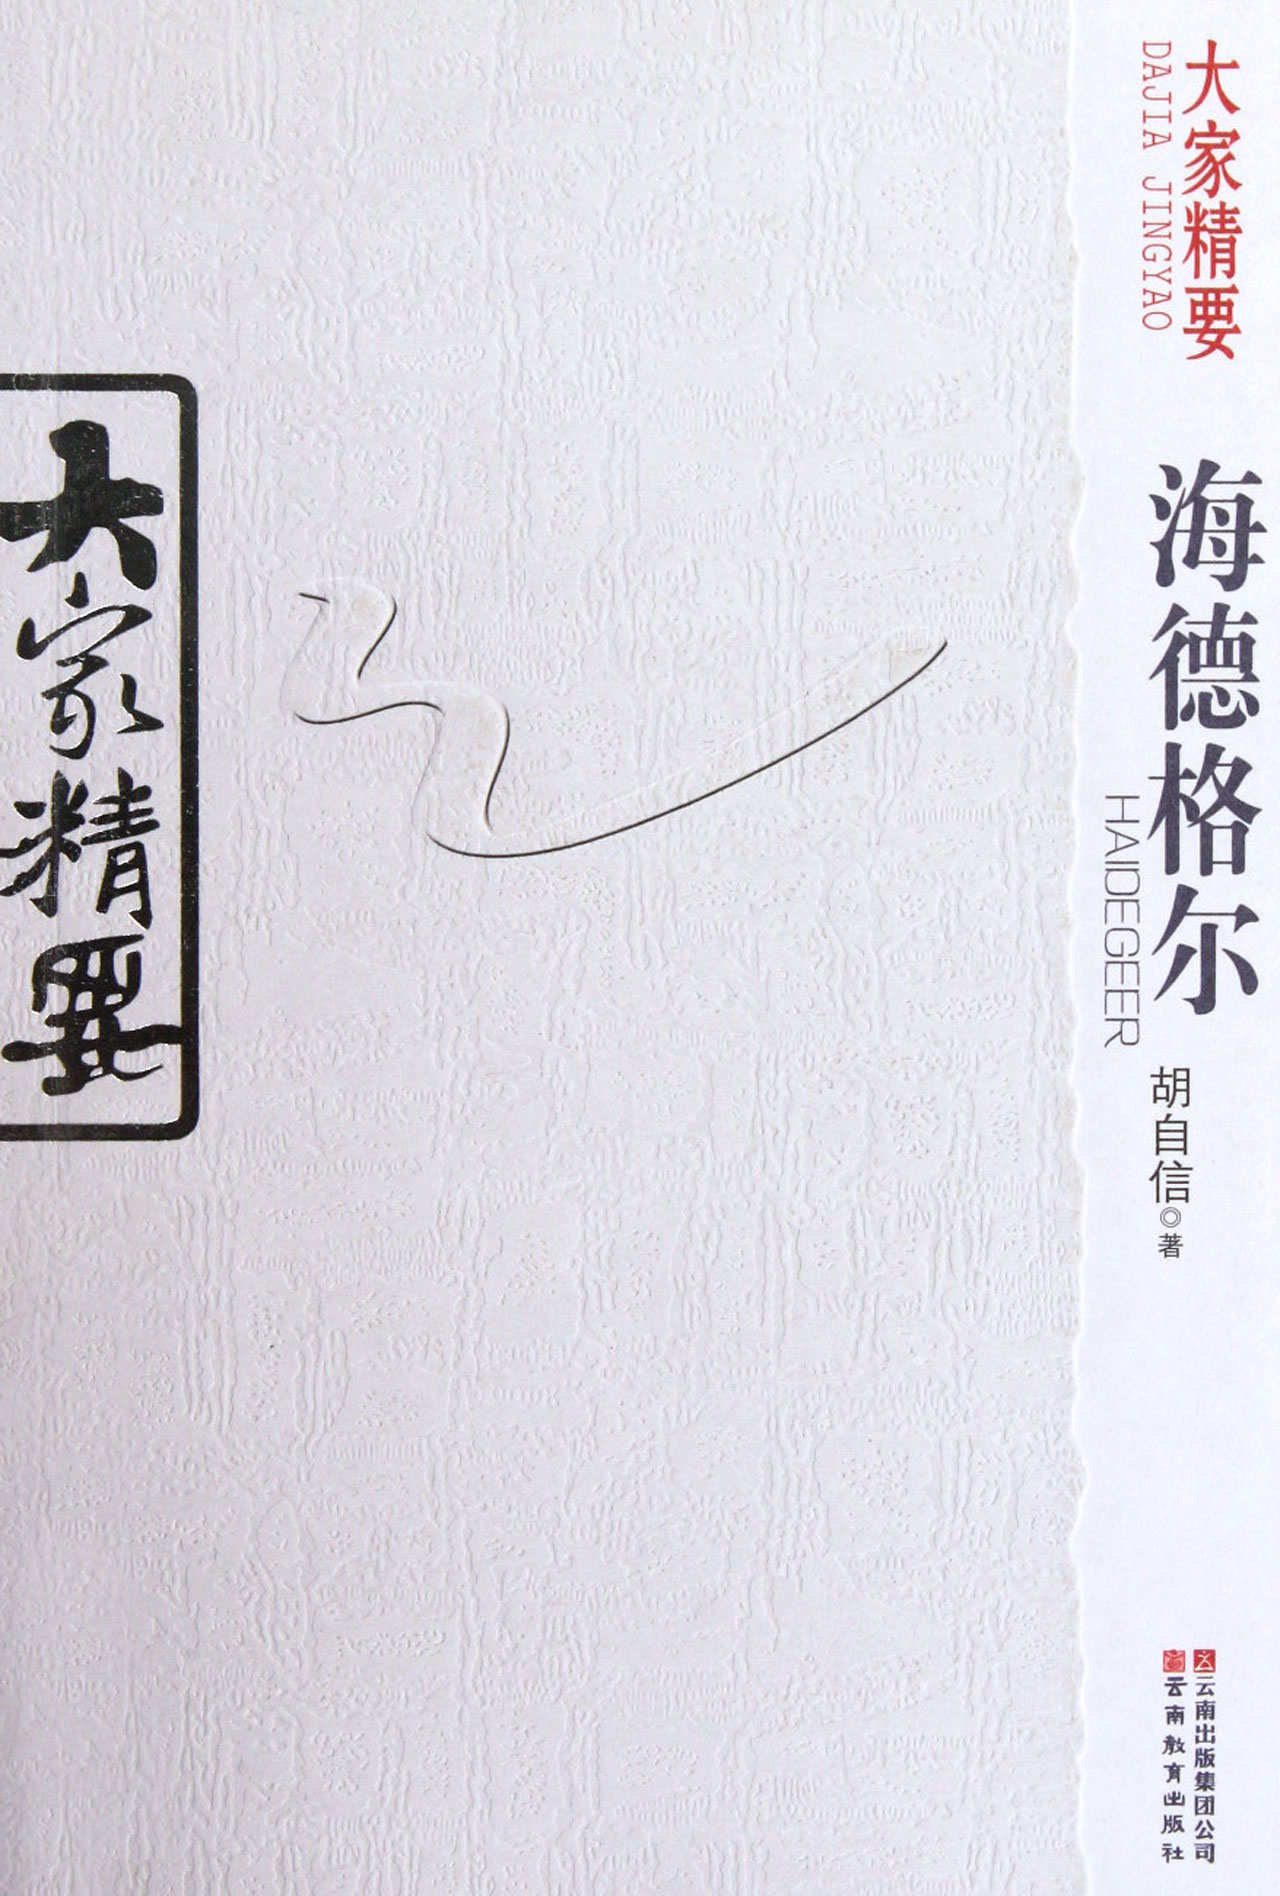 大家精要
DAJIA JINGYAO
海德格尔
HAIDEGEER
胡自信◎著
云南出版集团公司
云南教育出版社
大家精要